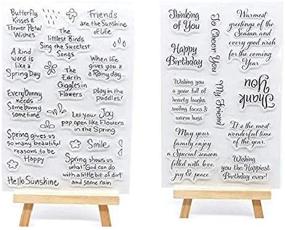 Butterfly
Kisses &
Flower Petal
Wishes
Friends
are the Sunshine
of life
The
littlest Birds
Sing the Sweetest
Songs
A kind
word is
like a
Spring Day
When life
gives you a
Rainy day...
play in the
puddles!
The
Earth
Giggles in
Flowers
Every Bunny
needs
Some bunny
some times
Let your Joy
pop open like Flowers
in the Spring
Spring gives us
so many beautiful
reasons to be
Happy
Smile
Spring shows us
what God can do
with a little bit of dirt
and some rain
Hello Sunshine
Thinking
of You
To Cheer You
Warmest
greetings of the
Season and every
good wish for the
coming Year
Happy
Birthday
Thank
You
Wishing you
a year full of
hearty laughs,
loving hugs &
joyful times
My Friend
It's the most
wonderful time
of the year.
May your
family enjoy
a Special season
filled with love,
joy & peace
Wishing
you the Happiest
Birthday ever!